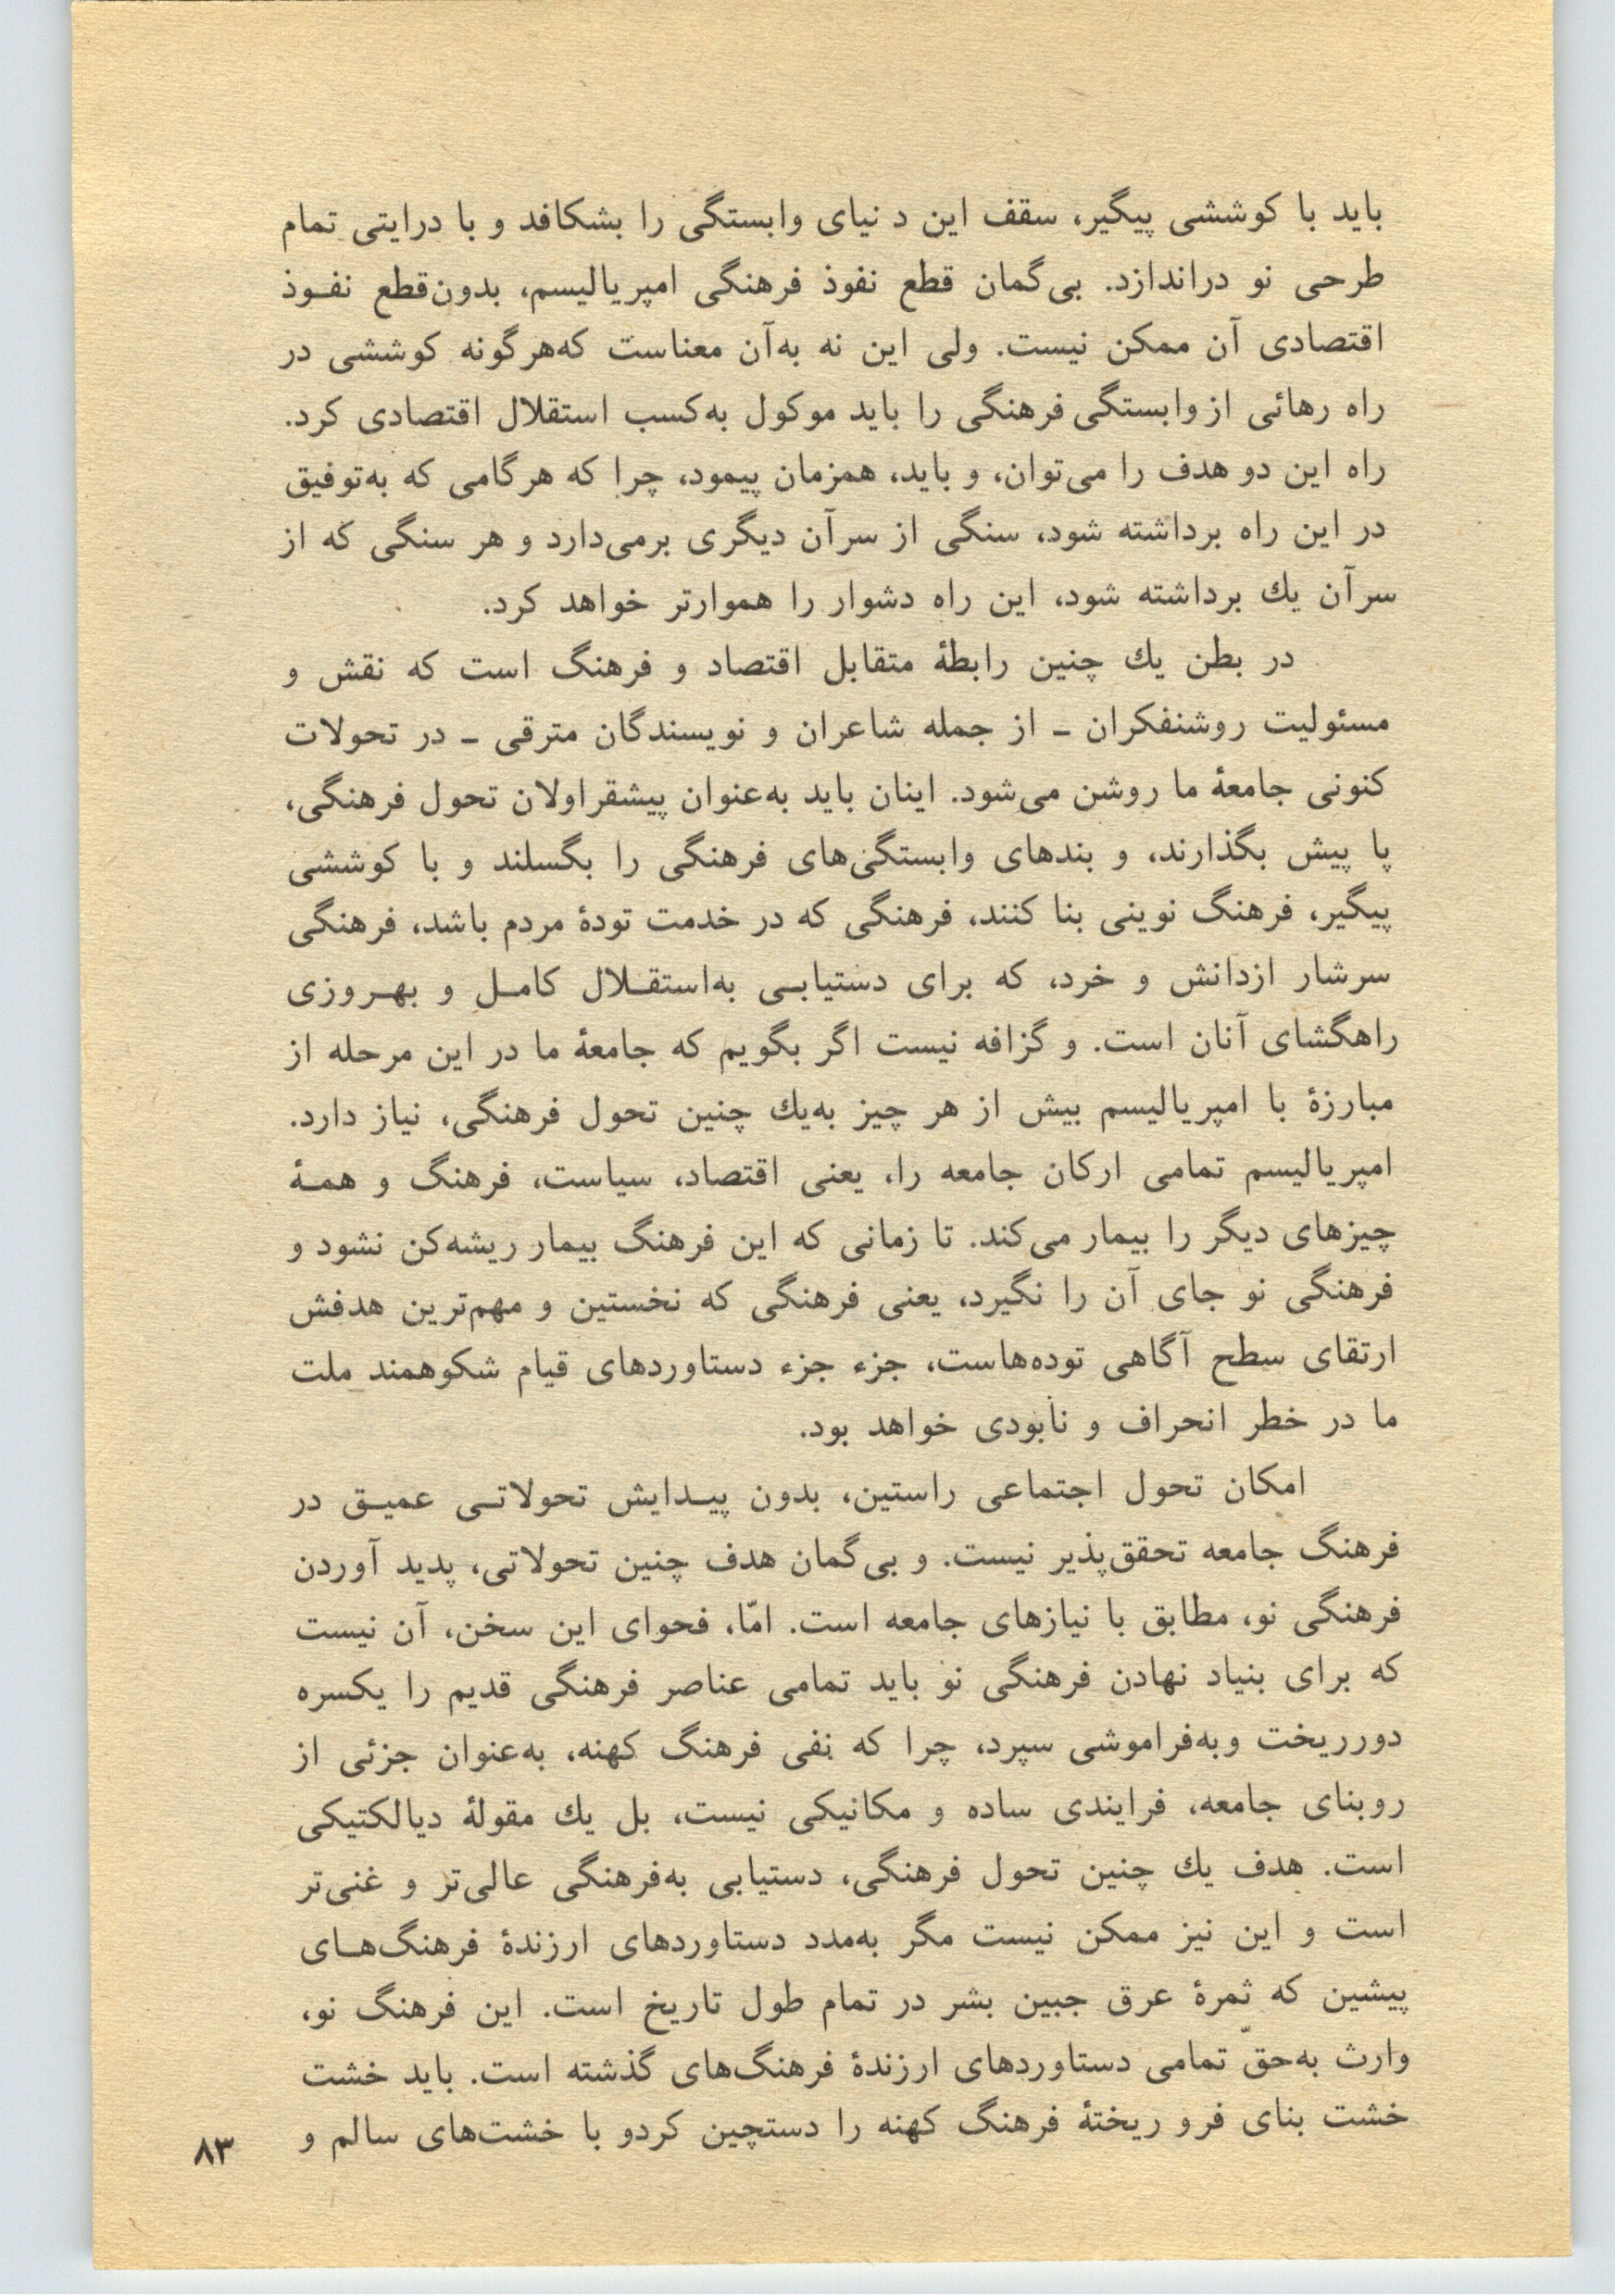 باید با کوششی پیگیر، سقف این دنیای وابستگی را بشکافد و با درایتی تمام
طرحی نو دراندازد. بی‌گمان قطع نفوذ فرهنگی امپریالیسم، بدون‌قطع نفوذ
اقتصادی آن ممکن نیست. ولی این نه به‌آن معناست که‌هرگونه کوششی در
راه رهائی از وابستگی فرهنگی را باید موکول به‌کسب استقلال اقتصادی کرد.
راه این دو هدف را می‌توان، و باید، همزمان پیمود، چرا که هرگامی که به‌توفیق
در این راه برداشته شود، سنگی از سرآن دیگری برمی‌دارد و هر سنگی که از
سرآن یك برداشته شود، این راه دشوار را هموارتر خواهد کرد.
در بطن یك چنین رابطۀ متقابل اقتصاد و فرهنگ است که نقش و
مسئولیت روشنفکران ـ از جمله شاعران و نویسندگان مترقی ـ در تحولات
کنونی جامعۀ ما روشن می‌شود. اینان باید به‌عنوان پیشقراولان تحول فرهنگی،
پا پیش بگذارند، و بندهای وابستگی‌های فرهنگی را بگسلند و با کوششی
پیگیر، فرهنگ نوینی بنا کنند، فرهنگی که در خدمت تودۀ مردم باشد، فرهنگی
سرشار ازدانش و خرد، که برای دستیابی به‌استقلال کامل و بهروزی
راهگشای آنان است. و گزافه نیست اگر بگویم که جامعۀ ما در این مرحله از
مبارزۀ با امپریالیسم بیش از هر چیز به‌یك چنین تحول فرهنگی، نیاز دارد.
امپریالیسم تمامی ارکان جامعه را، یعنی اقتصاد، سیاست، فرهنگ و همۀ
چیزهای دیگر را بیمار می‌کند. تا زمانی که این فرهنگ بیمار ریشه‌کن نشود و
فرهنگی نو جای آن را نگیرد، یعنی فرهنگی که نخستین و مهم‌ترین هدفش
ارتقای سطح آگاهی توده‌هاست، جزء جزء دستاوردهای قیام شکوهمند ملت
ما در خطر انحراف و نابودی خواهد بود.
امکان تحول اجتماعی راستین، بدون پیدایش تحولاتی عمیق در
فرهنگ جامعه تحقق‌پذیر نیست. و بی‌گمان هدف چنین تحولاتی، پدید آوردن
فرهنگی نو، مطابق با نیازهای جامعه است. امّا، فحوای این سخن، آن نیست
که برای بنیاد نهادن فرهنگی نو باید تمامی عناصر فرهنگی قدیم را یکسره
دورریخت وبه‌فراموشی سپرد، چرا که نفی فرهنگ کهنه، به‌عنوان جزئی از
روبنای جامعه، فرایندی ساده و مکانیکی نیست، بل یك مقولۀ دیالکتیکی
است. هدف یك چنین تحول فرهنگی، دستیابی به‌فرهنگی عالی‌تر و غنی‌تر
است و این نیز ممکن نیست مگر به‌مدد دستاوردهای ارزندۀ فرهنگ‌های
پیشین که ثمرۀ عرق جبین بشر در تمام طول تاریخ است. این فرهنگ نو،
وارث به‌حقّ تمامی دستاوردهای ارزندۀ فرهنگ‌های گذشته است. باید خشت
خشت بنای فرو ریختۀ فرهنگ کهنه را دستچین کردو با خشت‌های سالم و
۸۳